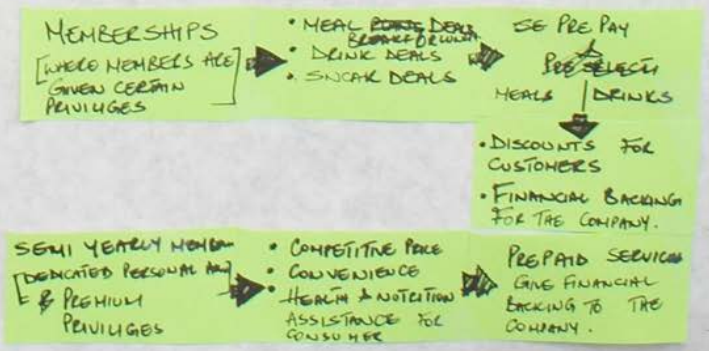 MEMBERSHIPS
[WHERE MEMBERS ARE
GIVEN CERTAIN
PRIVILIGES]
• MEAL DEALS
BREAKF OR LUNCH
• DRINK DEALS
• SNCAK DEALS
SE PRE PAY
PRE SELECT
MEALS | DRINKS
• DISCOUNTS FOR
CUSTOMERS
• FINANCIAL BACKING
FOR THE COMPANY.
SEMI YEARLY MEMBER
[DEDICATED PERSONAL AND]
& PREMIUM
PRIVILIGES
• COMPETITIVE PRICE
• CONVENIENCE
• HEALTH & NUTRITION
ASSISTANCE FOR
CONSUMER
PREPAID SERVICES
GIVE FINANCIAL
BACKING TO THE
COMPANY.